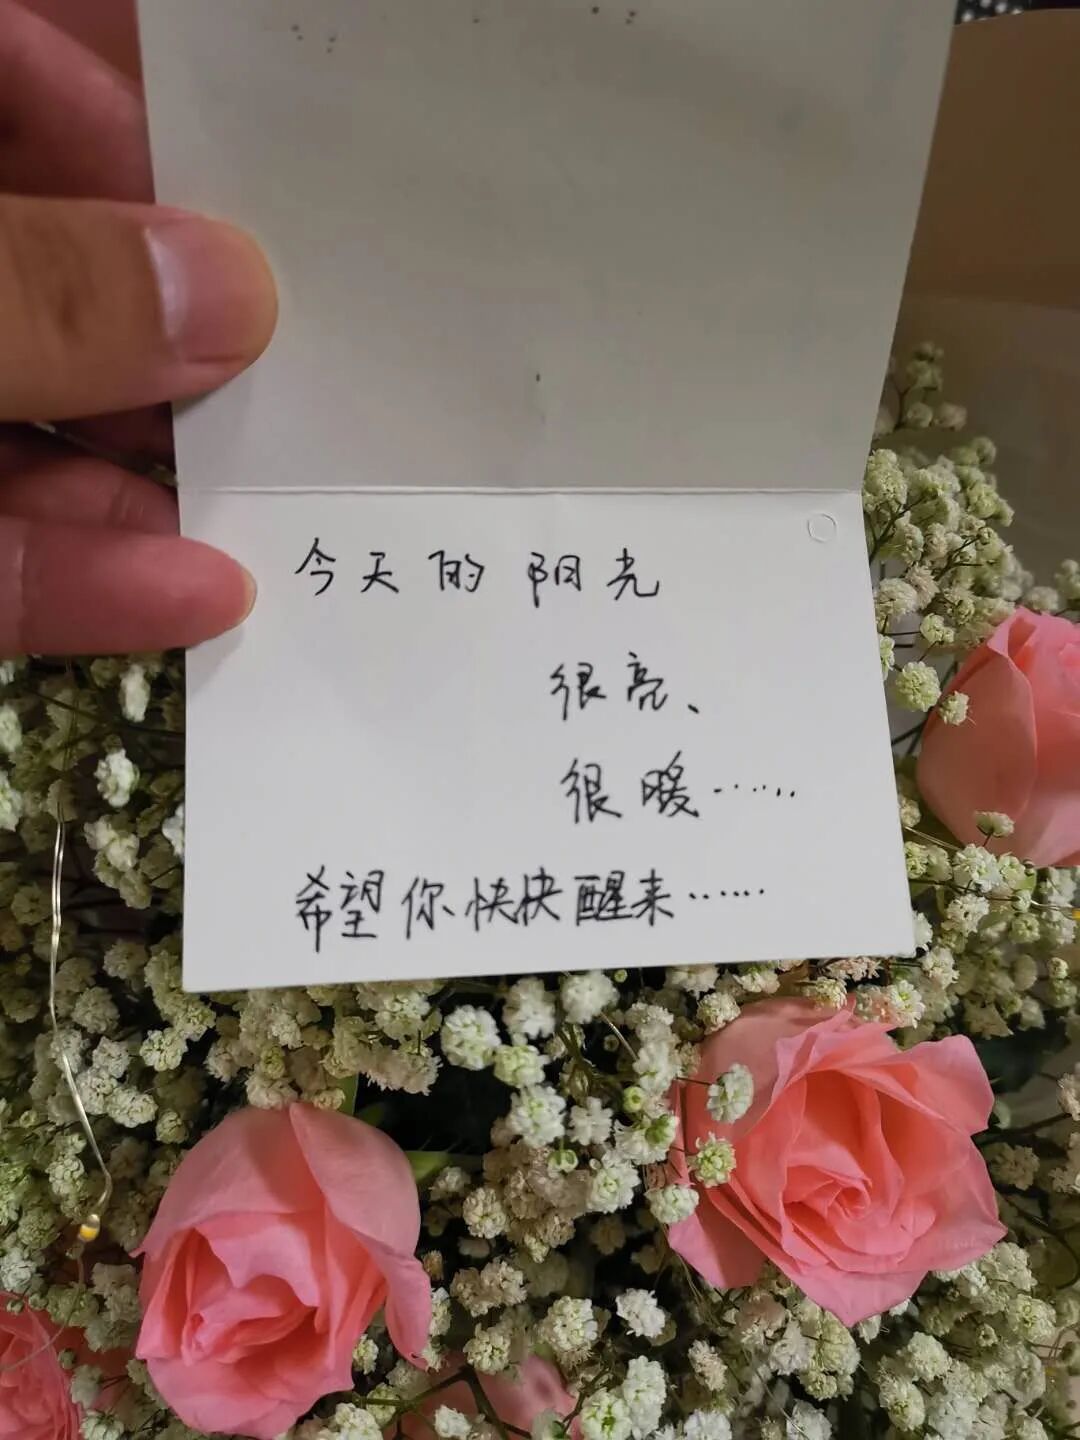 今天的阳光
很亮、
很暖……
希望你快快醒来……